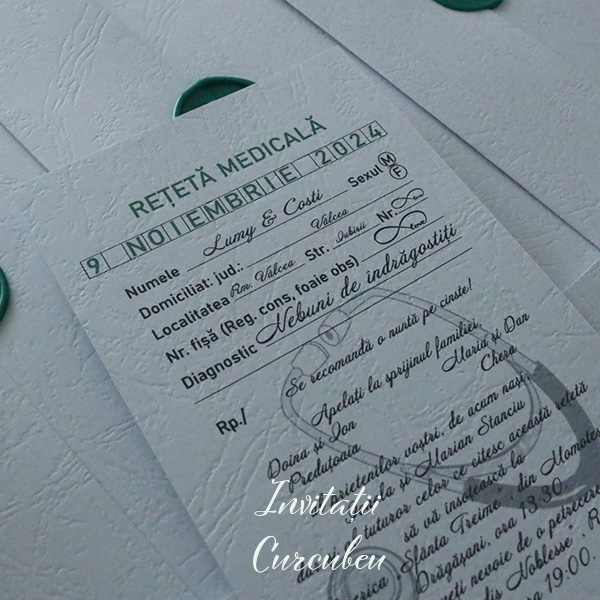 REȚETĂ MEDICALĂ
9 NOIEMBRIE 2024
Numele Lumy & Costi Sexul M F
Domiciliat: jud.: Vâlcea
Localitatea Rm. Vâlcea Str. Iubirii Nr. ∞
Nr. fișă (Reg. cons, foaie obs) love
Diagnostic Nebuni de îndrăgostiți
Rp./
Se recomandă o nuntă pe cinste!
Apelați la sprijinul familiei
Maria și Dan
Chera
Doina și Ion
Preduțoaia
prietenilor voștri, de acum nași,
și Marian Stanciu
tuturor celor ce citesc această rețetă
să vă însoțească la
"Sfânta Treime" din
Drăgășani, ora 13.30.
nevoie de o petrecere
Noblesse", R
ora 19:00.
Invitații
Curcubeu